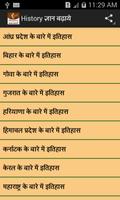 4:29 AM
History ज्ञान बढ़ाये
आंध्र प्रदेश के बारे में इतिहास
बिहार के बारे में इतिहास
गोवा के बारे में इतिहास
गुजरात के बारे में इतिहास
हरियाणा के बारे में इतिहास
हिमाचल प्रदेश के बारे में इतिहास
कर्नाटक के बारे में इतिहास
केरल के बारे में इतिहास
महाराष्ट्र के बारे में इतिहास